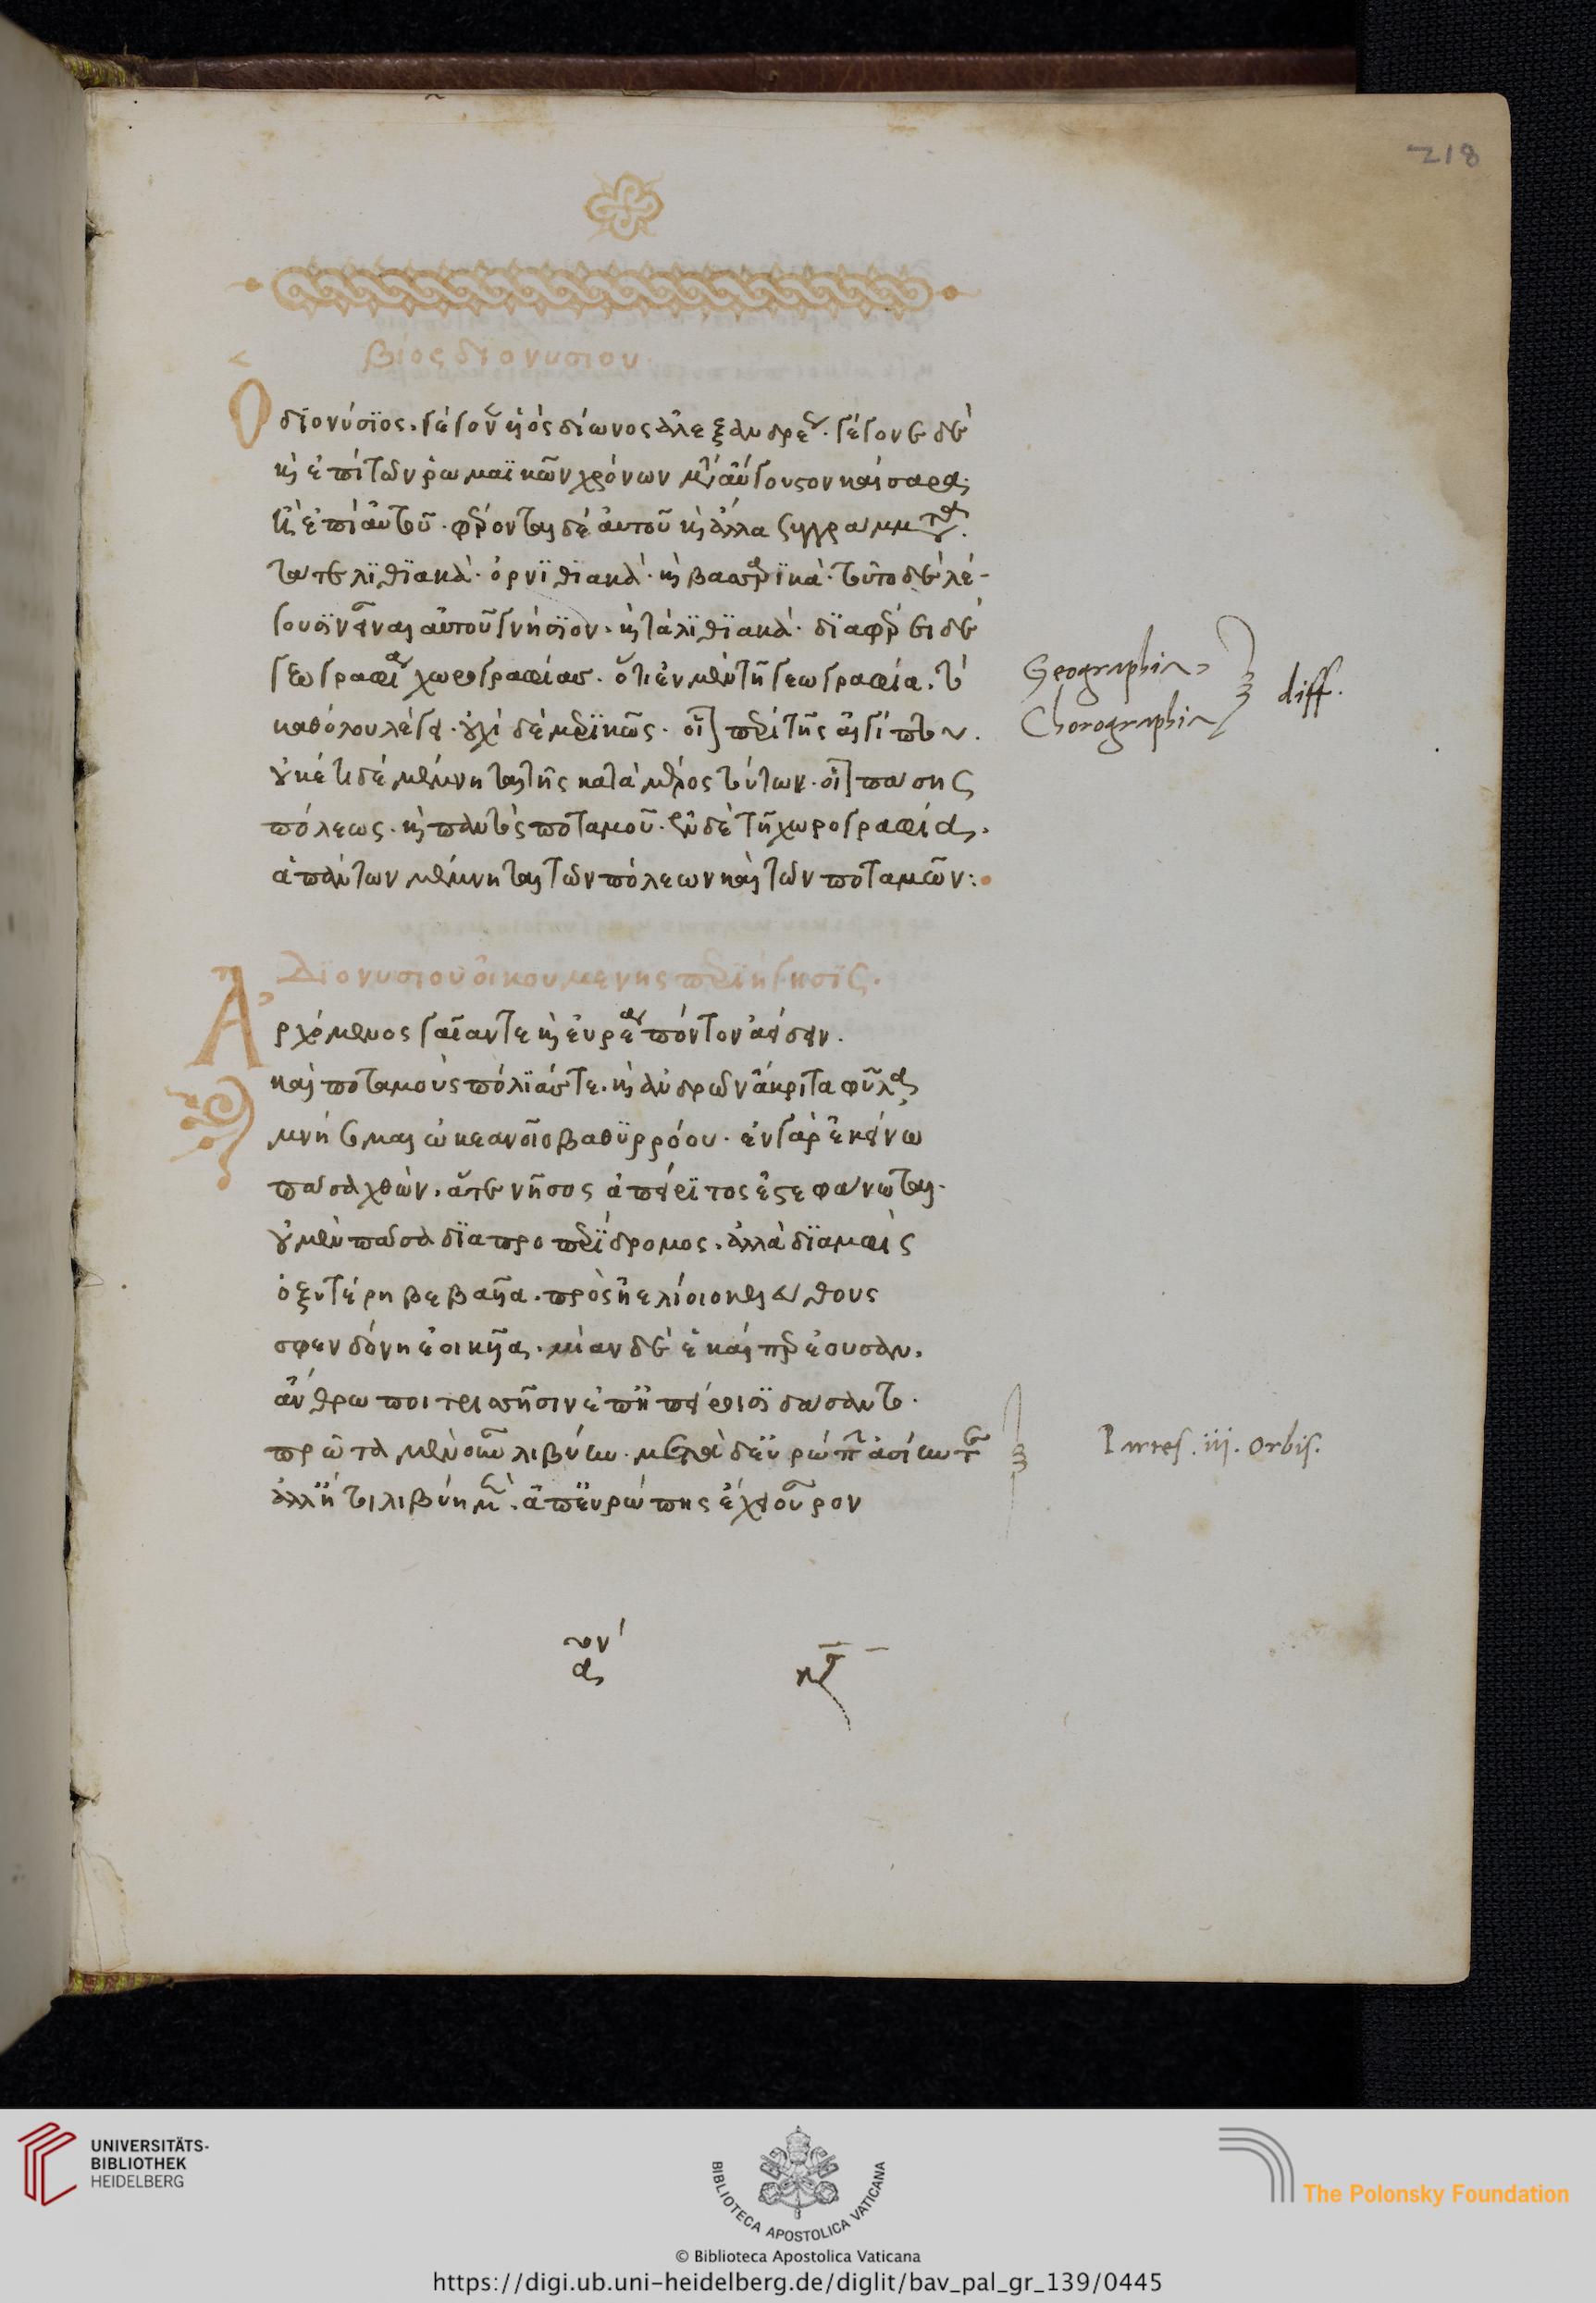 218
βίος διονυσιου
Ο διονύσιος. γέγονεν υἱὸς δίωνος ἀλεξανδρέως. γέγονε δὲ
καὶ ἐπὶ τῶν ῥωμαϊκῶν χρόνων μετὰ αὔγουστον καίσαρα,
ἢ ἐπὶ αὐτοῦ. φέρονται δὲ αὐτοῦ καὶ ἄλλα συγγράμματα.
τά τε λιθιακὰ. ὀρνιθιακὰ. καὶ βασσαρικά. τοῦτο δὲ λέ-
γουσιν εἶναι αὐτοῦ γνήσιον. καὶ τὰ λιθιακὰ. διαφέρει δὲ
γεωγραφία χωρογραφίας. ὅτι ἐν μὲν τῆ γεωγραφία. τὸ
καθόλου λέγει. οὐχὶ δὲ μερικῶς. οἷον περὶ τῆς αἰγύπτου.
οὐκέτι δὲ μέμνηται τῆς κατὰ μέρος τούτων. οἷον πάσης
πόλεως. καὶ παντὸς ποταμοῦ. ἐν δὲ τῆ χωρογραφία.
ἁπάντων μέμνηται τῶν πόλεων καὶ τῶν ποταμῶν:
Geographia
Chorographia
diff.
Διονυσιου οἰκουμένης περιήγησις.
Ἀρχόμενος γαῖαν τε καὶ εὐρέα πόντον ἀείσειν.
καὶ ποταμοὺς πόλιάς τε. καὶ ἀνδρῶν ἄκριτα φῦλα,
μνήσομαι ὠκεανοῖο βαθυρρόου. ἐν γὰρ ἐκείνω
πᾶσα χθὼν. ἅτε νῆσος ἀπείριτος ἐστεφάνωται.
οὐ μὲν πᾶσα διαπρὸ περίδρομος. ἀλλὰ διαμφὶς
ὀξυτέρη βεβαυῖα. πρὸς ἠελίοιο κελεύθους
σφενδόνη ἐοικυῖα. μίαν δὲ ἑ καί περ ἐοῦσαν.
ἄνθρωποι τρισσῆσιν ἐπ' ἠπείροισι δάσαντο.
πρῶτα μὲν οὖν λιβύην. μετὰ δ' εὐρώπην ἀσίην τε
ἀλλ' ἤτοι λιβύη μὲν. ἀπ' εὐρώπης ἔχει οὖρον
Partes .iij. orbis.
UNIVERSITÄTS-
BIBLIOTHEK
HEIDELBERG
BIBLIOTECA APOSTOLICA VATICANA
The Polonsky Foundation
© Biblioteca Apostolica Vaticana
https://digi.ub.uni-heidelberg.de/diglit/bav_pal_gr_139/0445